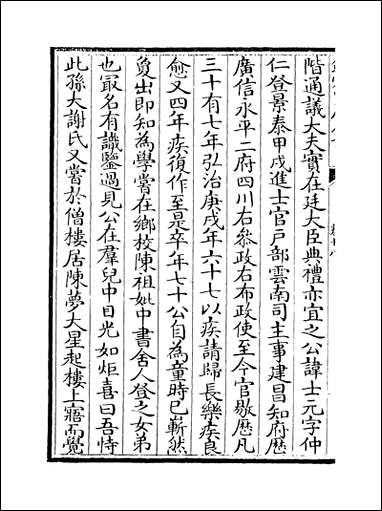 階通議大夫實在廷大臣典禮亦宜之公諱士元字仲
仁登景泰甲戌進士官戶部雲南司主事建昌知府歷
廣信永平二府四川右叅政右布政使至今官敭歷凡
三十有七年弘治庚戌年六十七以疾請歸長樂疾良
愈又四年疾復作至是卒年七十公自為童時已嶄然
負出即知為學嘗在鄉校陳祖妣中書舍人登之女弟
也㝡名有識鑒過見公在羣兒中目光如炬喜曰吾恃
此孫大謝氏又嘗於僧樓居陳夢大星起樓上寤而覺